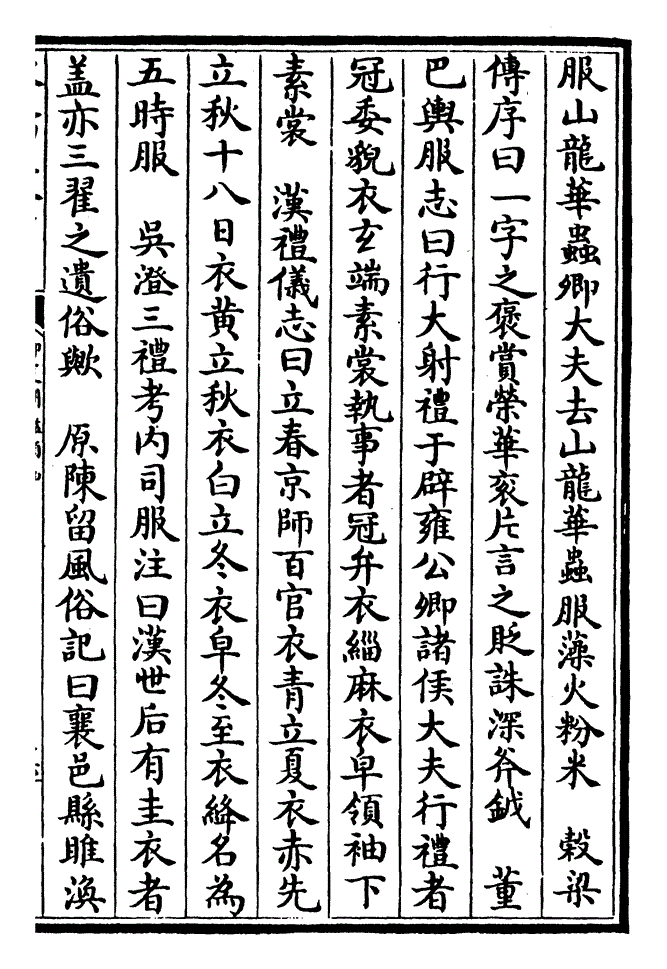 服山龍華蟲卿大夫去山龍華蟲服藻火粉米　穀梁
傳序曰一字之褒賞榮華衮片言之貶誅深斧鉞　董
巴輿服志曰行大射禮于辟雍公卿諸侯大夫行禮者
冠委貌衣玄端素裳執事者冠弁衣緇麻衣皁領袖下
素裳　漢禮儀志曰立春京師百官衣青立夏衣赤先
立秋十八日衣黄立秋衣白立冬衣皁冬至衣絳名為
五時服　吳澄三禮考内司服注曰漢世后有圭衣者
盖亦三翟之遺俗歟　原陳留風俗記曰襄邑縣睢渙